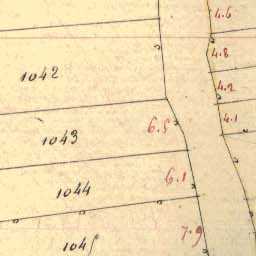 4.6
4.8
1042
4.2
4.1
6.5
1043
6.1
1044
7.9
1045